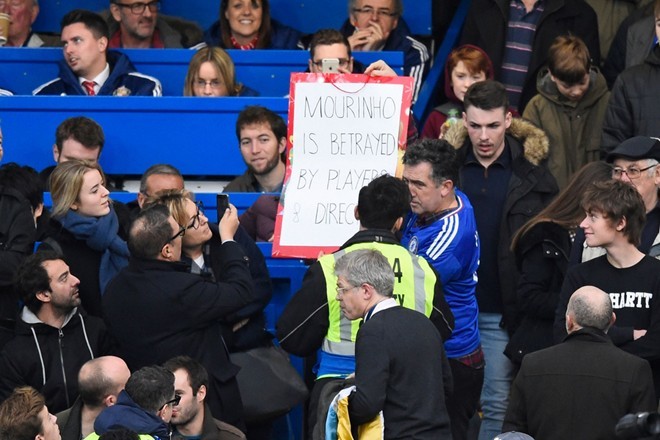 MOURINHO
IS BETRAYED
BY PLAYERS
& DIREC
4
HARTT